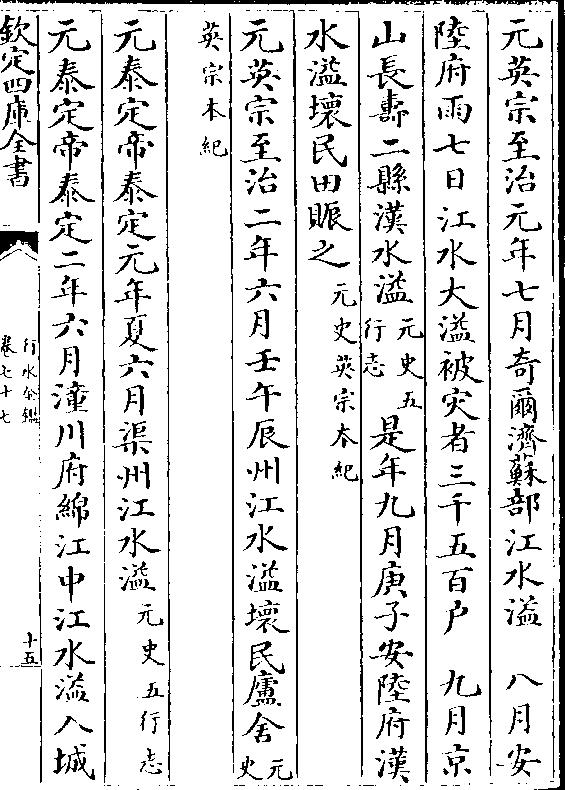 元英宗至治元年七月奇爾濟蘇部江水溢　八月安
陸府雨七日江水大溢被灾者三千五百户　九月京
山長壽二縣漢水溢元史五行志　是年九月庚子安陸府漢
水溢壞民田賑之元史英宗本紀
元英宗至治二年六月壬午辰州江水溢壞民廬舍元史
英宗本紀
元泰定帝泰定元年夏六月渠州江水溢元史五行志
元泰定帝泰定二年六月潼川府綿江中江水溢入城
欽定四庫全書
行水金鑑
卷七十七
十五